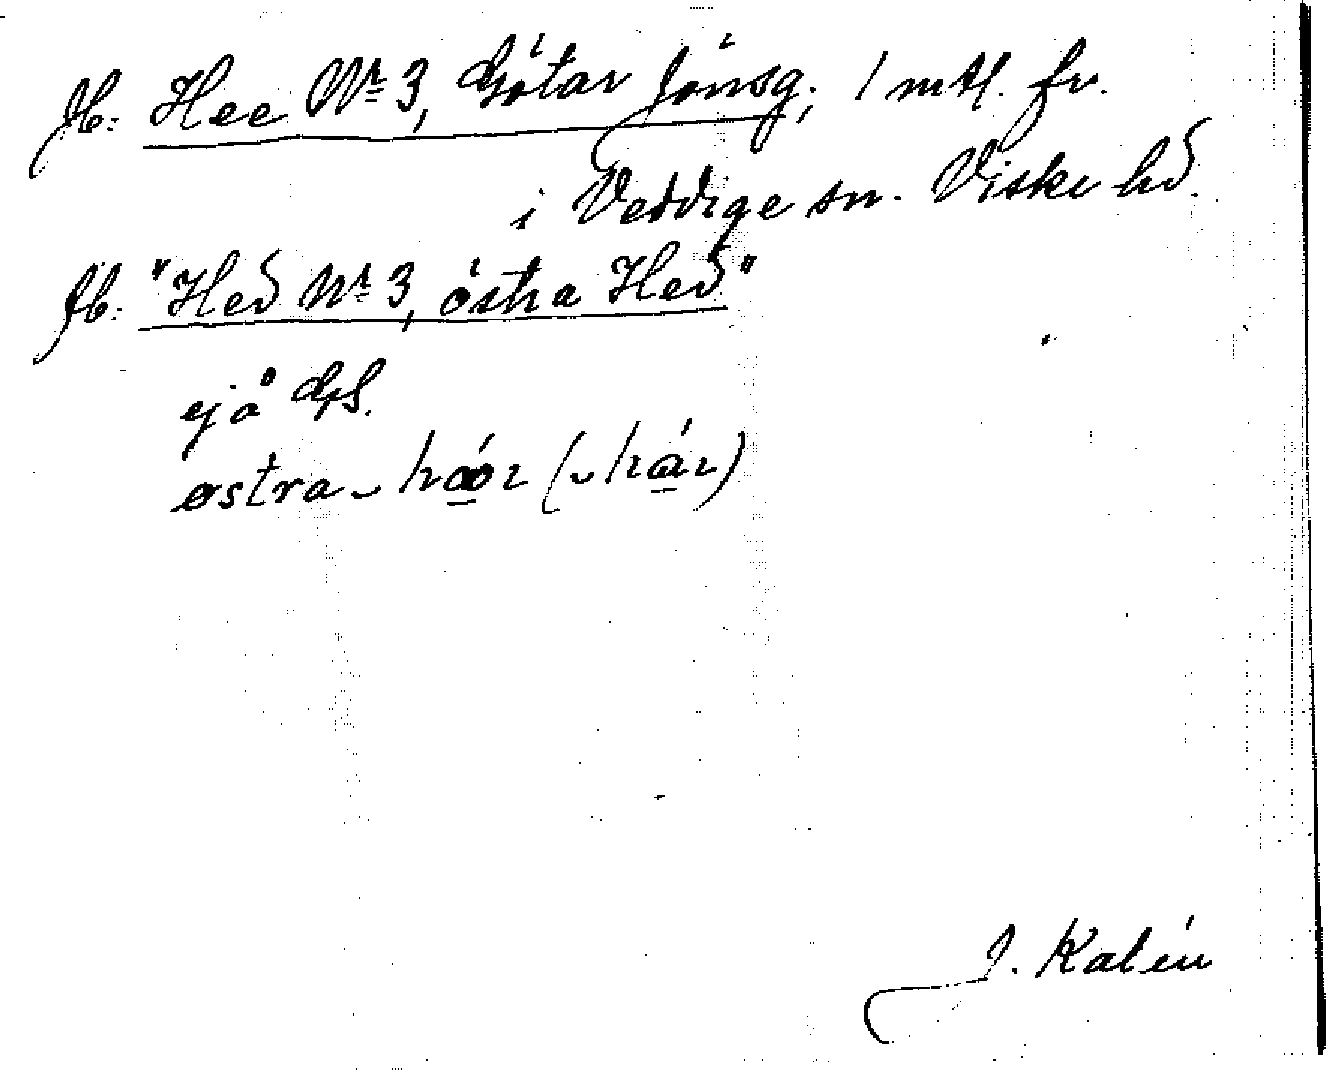 Jb: Hee Nr 3, Götar Jönsg.; 1 mtl. fr.
i Veddige sn. Viske hd.
Jb: "Hed Nr 3, östra Hed"
ej å GS.
østra
J. Kalén